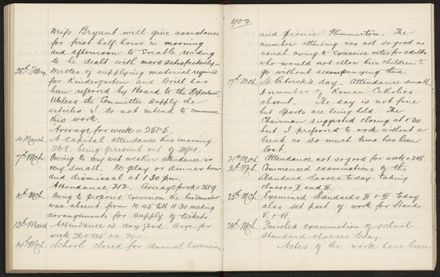 Miss Bryant will give assistance
for first half hour in morning
and afternoon to enable reading
to be dealt with more satisfactorily.
Matter of supplying material required
for Kindergarten and Brick has
been referred by Board to the Department
Unless the Committee supply the
articles I do not intend to commence
this work.
Average for week = 281.5.
4 March A capital attendance this morning
268 being present out of
7th Mch. Owing to very wet weather attendance is
very small. No play or dinner hour
and dismissal at 1.30 pm.
Attendance 212. Average for wk = 258.9
10th Mch. Owing to proposed Excursion the headmaster
was absent from 10.45 till 11.30 making
arrangements for supply of tickets
13th March Attendance is very good. Avge for
week
14th Mch. School closed for Annual Excursion
1902
and Jeannie Plimmerton. The
number attending was not so good as
usual owing to excursion rates for adults
who would not allow their children to
go without accompanying them.
17th Mch. St Patrick's day. Attendance small
A number of Roman Catholics
absent. The day is not fine
but sports are being held. The
Chairman suggested closing at 1.30
but I preferred to work without a
break as so much time has been
lost.
21st Mch. Attendance not so good for week = 248.
Mch. Commenced examinations of the
Standard classes today. Taking
classes I and II.
25th Mch. Examined Standards III & IV today
also set part of work for Stands.
V & VI.
26th Mch. Finished examination of school
Standard classes today.
Notes of the work have been